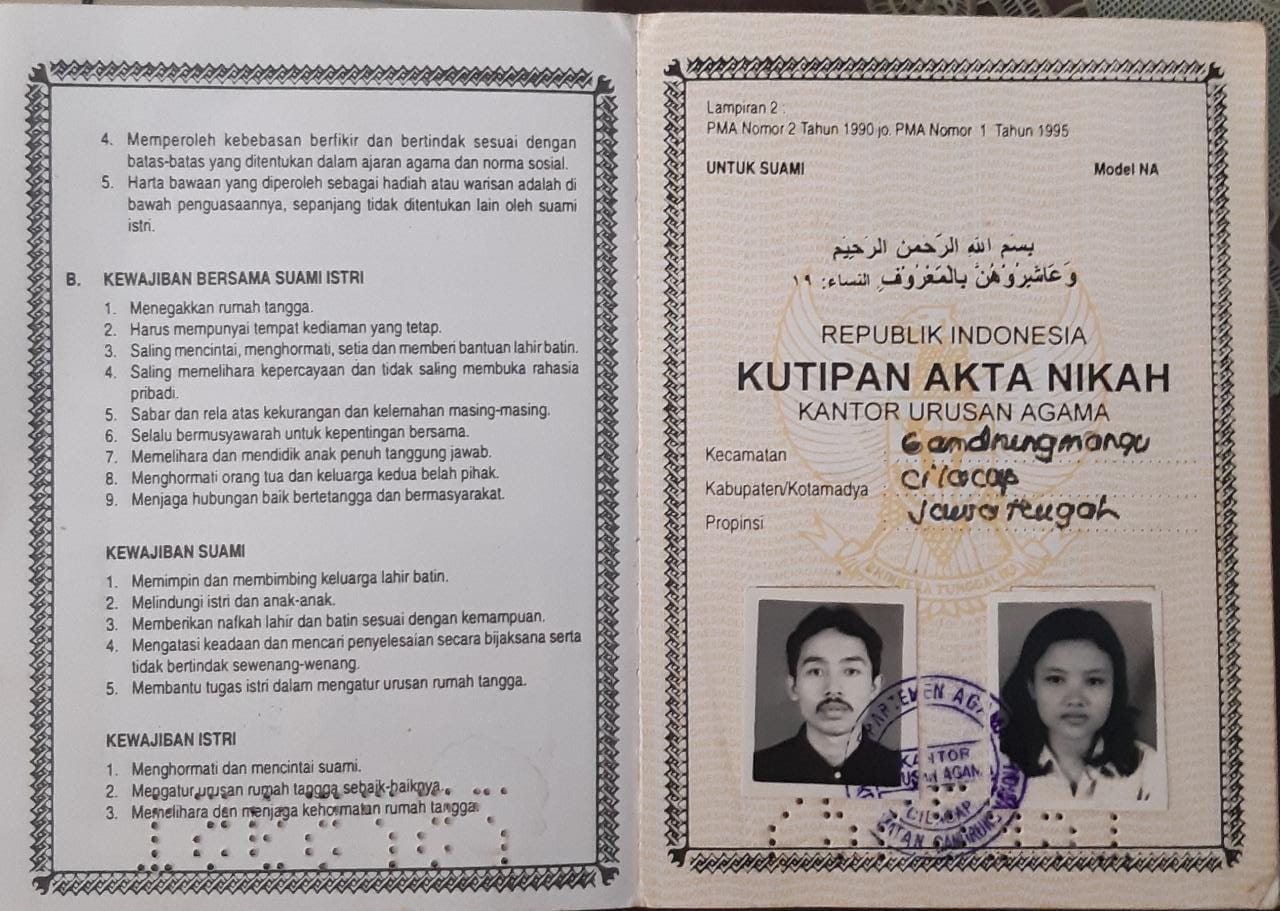 4. Memperoleh kebebasan berfikir dan bertindak sesuai dengan
batas-batas yang ditentukan dalam ajaran agama dan norma sosial.
5. Harta bawaan yang diperoleh sebagai hadiah atau warisan adalah di
bawah penguasaannya, sepanjang tidak ditentukan lain oleh suami
istri.
B. KEWAJIBAN BERSAMA SUAMI ISTRI
1. Menegakkan rumah tangga.
2. Harus mempunyai tempat kediaman yang tetap.
3. Saling mencintai, menghormati, setia dan memberi bantuan lahir batin.
4. Saling memelihara kepercayaan dan tidak saling membuka rahasia
pribadi.
5. Sabar dan rela atas kekurangan dan kelemahan masing-masing.
6. Selalu bermusyawarah untuk kepentingan bersama.
7. Memelihara dan mendidik anak penuh tanggung jawab.
8. Menghormati orang tua dan keluarga kedua belah pihak.
9. Menjaga hubungan baik bertetangga dan bermasyarakat.
KEWAJIBAN SUAMI
1. Memimpin dan membimbing keluarga lahir batin.
2. Melindungi istri dan anak-anak.
3. Memberikan nafkah lahir dan batin sesuai dengan kemampuan.
4. Mengatasi keadaan dan mencari penyelesaian secara bijaksana serta
tidak bertindak sewenang-wenang.
5. Membantu tugas istri dalam mengatur urusan rumah tangga.
KEWAJIBAN ISTRI
1. Menghormati dan mencintai suami.
2. Mengatur urusan rumah tangga sebaik-baiknya.
3. Memelihara dan menjaga kehormatan rumah tangga.
Lampiran 2 :
PMA Nomor 2 Tahun 1990 jo. PMA Nomor 1 Tahun 1995
UNTUK SUAMI Model NA
بِسْمِ اللهِ الرَّحْمنِ الرَّحِيْمِ
وَعَاشِرُوْهُنَّ بِالْمَعْرُوْفِ النساء: ١٩
REPUBLIK INDONESIA
KUTIPAN AKTA NIKAH
KANTOR URUSAN AGAMA
Kecamatan : Gandrungmangu
Kabupaten/Kotamadya : Cilacap
Propinsi : Jawa Tengah
BHINNEKA TUNGGAL IKA
KANTOR
URUSAN AGAMA
CILACAP